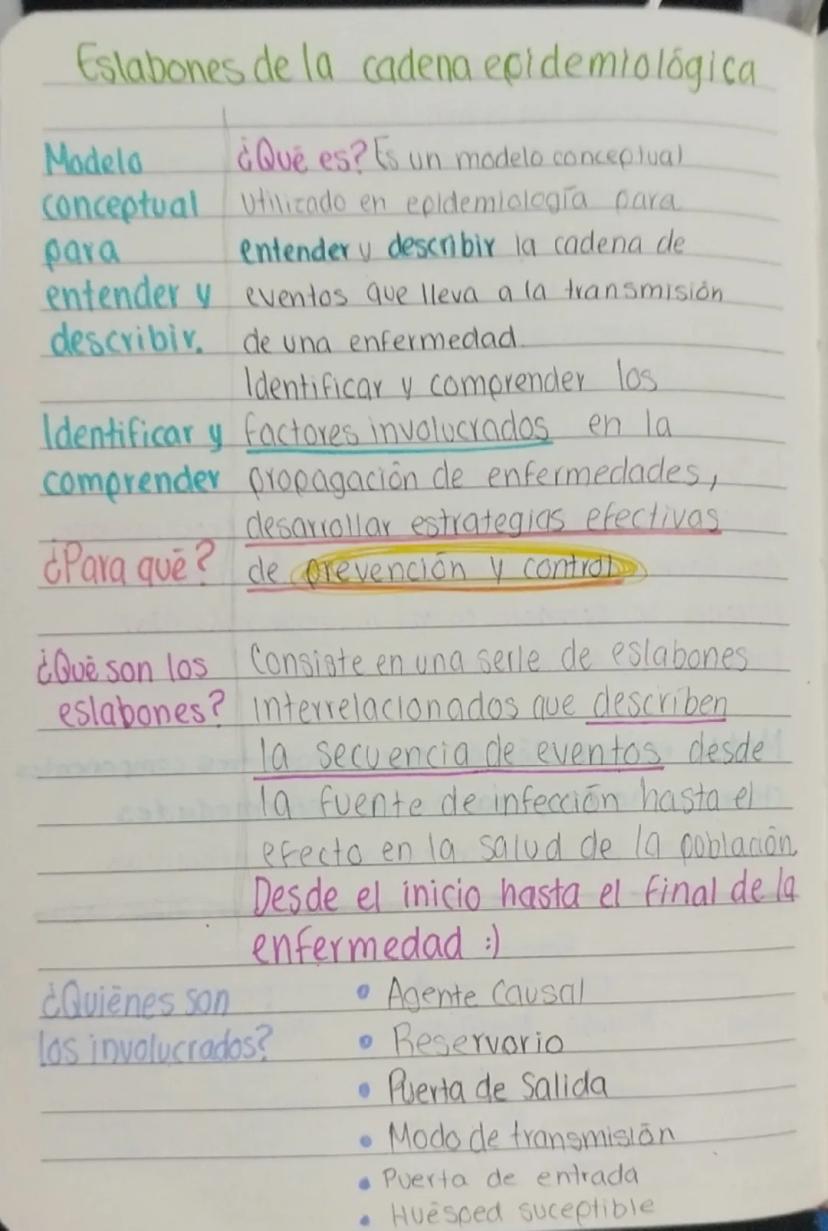 Eslabones de la cadena epidemiológica
Modelo
conceptual
para
entender y
describir.
¿Qué es? Es un modelo conceptual
utilizado en epidemiología para
entender y describir la cadena de
eventos que lleva a la transmisión
de una enfermedad.
Identificar y comprender los
Identificar y
comprender
factores involucrados en la
propagación de enfermedades,
desarrollar estrategias efectivas
¿Para qué?
de prevención y control
¿Qué son los
eslabones?
Consiste en una serie de eslabones
interrelacionados que describen
la secuencia de eventos desde
la fuente de infección hasta el
efecto en la salud de la población.
Desde el inicio hasta el final de la
enfermedad :)
¿Quiénes son
los involucrados?
• Agente Causal
• Reservorio
• Puerta de Salida
• Modo de transmisión
• Puerta de entrada
• Huésped suceptible